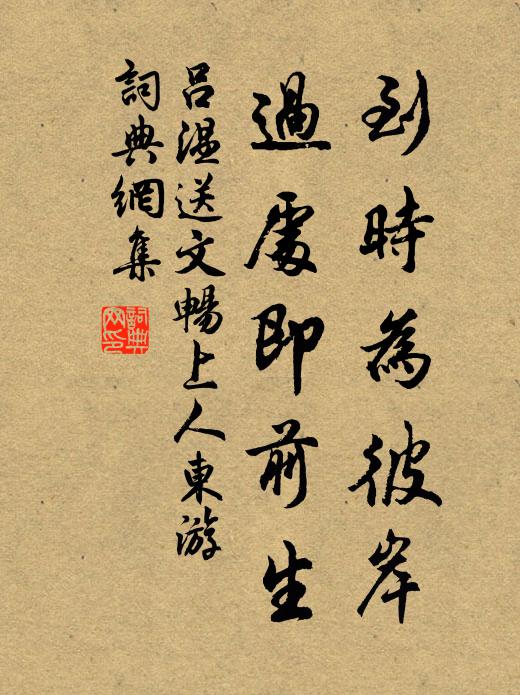 到時為彼岸
過處即前生
呂溫送文暢上人東游
詞典網集
詞典网印